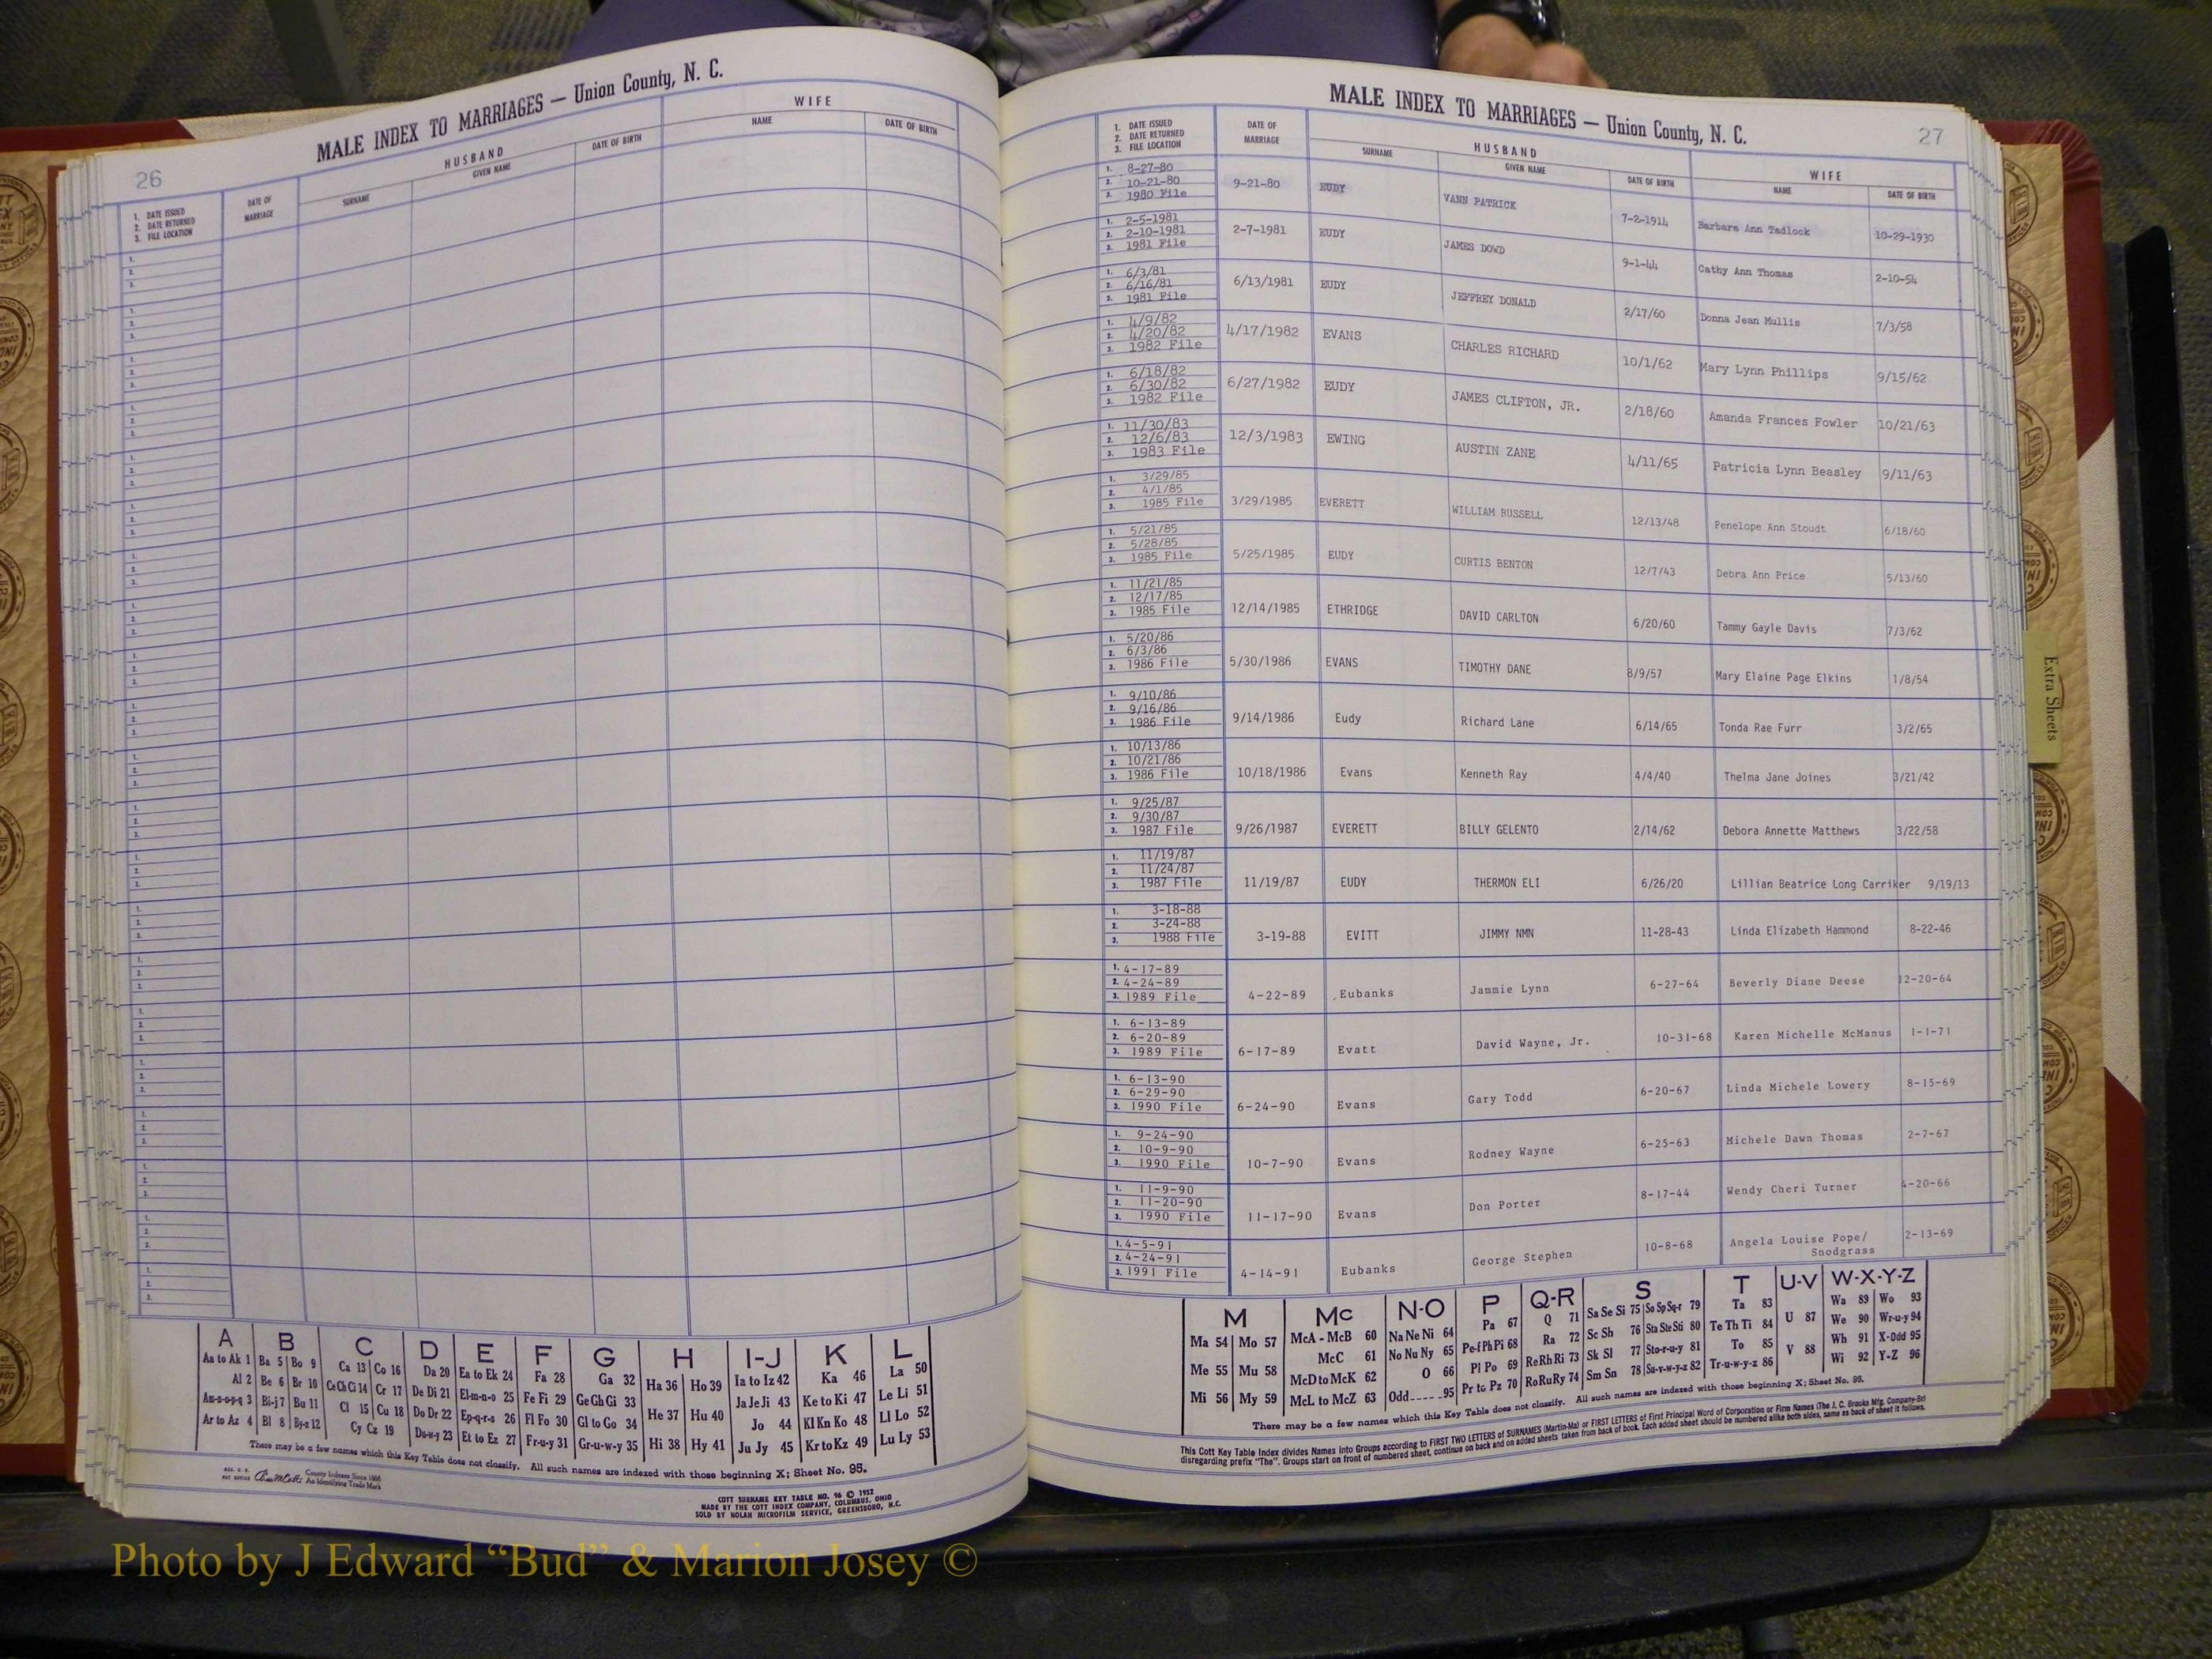 26
MALE INDEX TO MARRIAGES — Union County, N. C.
1. DATE ISSUED
2. DATE RETURNED
3. FILE LOCATION
DATE OF MARRIAGE
HUSBAND
SURNAME GIVEN NAME DATE OF BIRTH
WIFE
NAME DATE OF BIRTH
A B C D E F G H I-J K L
Aa to Ak 1 Ba 5 Bo 9 Ca 13 Co 16 Da 20 Ea to Ek 24 Fa 28 Ga 32 Ha 36 Ho 39 Ia to Iz 42 Ka 46 La 50
Al 2 Be 6 Br 10 Ce Ch Ci 14 Cr 17 De Di 21 El-m-n-o 25 Fe Fi 29 Ge Gh Gi 33 Ja Je Ji 43 Ke to Ki 47 Le Li 51
Am-n-o-p-q 3 Bi-j 7 Bu 11 Cl 15 Cu 18 Do Dr 22 Ep-q-r-s 26 Fl Fo 30 Gl to Go 34 He 37 Hu 40 Jo 44 Kl Kn Ko 48 Ll Lo 52
Ar to Az 4 Bl 8 By-z 12 Cy Cz 19 Du-w-y 23 Et to Ez 27 Fr-u-y 31 Gr-u-w-y 35 Hi 38 Hy 41 Ju Jy 45 Kr to Kz 49 Lu Ly 53
There may be a few names which this Key Table does not classify. All such names are indexed with those beginning X; Sheet No. 95.
County Indexes Since 1888
An Identifying Trade Mark
COTT SURNAME KEY TABLE NO. 96 © 1952
MADE BY THE COTT INDEX COMPANY, COLUMBUS, OHIO
SOLD BY NOLAN MICROFILM SERVICE, GREENSBORO, N.C.
MALE INDEX TO MARRIAGES — Union County, N. C.
27
1. DATE ISSUED
2. DATE RETURNED
3. FILE LOCATION
DATE OF MARRIAGE
HUSBAND
SURNAME GIVEN NAME DATE OF BIRTH
WIFE
NAME DATE OF BIRTH
1. 8-27-80
2. 10-21-80
3. 1980 File
9-21-80 EUDY VANN PATRICK 7-2-1914 Barbara Ann Tadlock 10-29-1930
1. 2-5-1981
2. 2-10-1981
3. 1981 File
2-7-1981 EUDY JAMES DOWD 9-1-44 Cathy Ann Thomas 2-10-54
1. 6/3/81
2. 6/16/81
3. 1981 File
6/13/1981 EUDY JEFFREY DONALD 2/17/60 Donna Jean Mullis 7/3/58
1. 4/9/82
2. 4/20/82
3. 1982 File
4/17/1982 EVANS CHARLES RICHARD 10/1/62 Mary Lynn Phillips 9/15/62
1. 6/18/82
2. 6/30/82
3. 1982 File
6/27/1982 EUDY JAMES CLIFTON, JR. 2/18/60 Amanda Frances Fowler 10/21/63
1. 11/30/83
2. 12/6/83
3. 1983 File
12/3/1983 EWING AUSTIN ZANE 4/11/65 Patricia Lynn Beasley 9/11/63
1. 3/29/85
2. 4/1/85
3. 1985 File
3/29/1985 EVERETT WILLIAM RUSSELL 12/13/48 Penelope Ann Stoudt 6/18/60
1. 5/21/85
2. 5/28/85
3. 1985 File
5/25/1985 EUDY CURTIS BENTON 12/7/43 Debra Ann Price 5/13/60
1. 11/21/85
2. 12/17/85
3. 1985 File
12/14/1985 ETHRIDGE DAVID CARLTON 6/20/60 Tammy Gayle Davis 7/3/62
1. 5/20/86
2. 6/3/86
3. 1986 File
5/30/1986 EVANS TIMOTHY DANE 8/9/57 Mary Elaine Page Elkins 1/8/54
1. 9/10/86
2. 9/16/86
3. 1986 File
9/14/1986 Eudy Richard Lane 6/14/65 Tonda Rae Furr 3/2/65
1. 10/13/86
2. 10/21/86
3. 1986 File
10/18/1986 Evans Kenneth Ray 4/4/40 Thelma Jane Joines 3/21/42
1. 9/25/87
2. 9/30/87
3. 1987 File
9/26/1987 EVERETT BILLY GELENTO 2/14/62 Debora Annette Matthews 3/22/58
1. 11/19/87
2. 11/24/87
3. 1987 File
11/19/87 EUDY THERMON ELI 6/26/20 Lillian Beatrice Long Carriker 9/19/13
1. 3-18-88
2. 3-24-88
3. 1988 File
3-19-88 EVITT JIMMY NMN 11-28-43 Linda Elizabeth Hammond 8-22-46
1. 4-17-89
2. 4-24-89
3. 1989 File
4-22-89 Eubanks Jammie Lynn 6-27-64 Beverly Diane Deese 12-20-64
1. 6-13-89
2. 6-20-89
3. 1989 File
6-17-89 Evatt David Wayne, Jr. 10-31-68 Karen Michelle McManus 1-1-71
1. 6-13-90
2. 6-29-90
3. 1990 File
6-24-90 Evans Gary Todd 6-20-67 Linda Michele Lowery 8-15-69
1. 9-24-90
2. 10-9-90
3. 1990 File
10-7-90 Evans Rodney Wayne 6-25-63 Michele Dawn Thomas 2-7-67
1. 11-9-90
2. 11-20-90
3. 1990 File
11-17-90 Evans Don Porter 8-17-44 Wendy Cheri Turner 4-20-66
1. 4-5-91
2. 4-24-91
3. 1991 File
4-14-91 Eubanks George Stephen 10-8-68 Angela Louise Pope/ 2-13-69
Snodgrass
M Mc N-O P Q-R S T U-V W-X-Y-Z
Ma 54 Mo 57 McA - McB 60 Na Ne Ni 64 Pa 67 Q 71 Sa Se Si 75 So Sp Sq-r 79 Ta 83 U 87 Wa 89 Wo 93
McC 61 No Nu Ny 65 Pe-f Ph Pi 68 Ra 72 Sc Sh 76 Sta Ste Sti 80 Te Th Ti 84 We 90 Wr-u-y 94
Me 55 Mu 58 McD to McK 62 O 66 Pl Po 69 Re Rh Ri 73 Sk Sl 77 Sto-r-u-y 81 To 85 V 88 Wh 91 X-Odd 95
Mi 56 My 59 McL to McZ 63 Odd 95 Pr to Pz 70 Ro Ru Ry 74 Sm Sn 78 Su-v-w-y-z 82 Tr-u-w-y-z 86 Wi 92 Y-Z 96
There may be a few names which this Key Table does not classify. All such names are indexed with those beginning X; Sheet No. 95.
This Cott Key Table Index divides Names into Groups according to FIRST TWO LETTERS of SURNAMES (Martin-Ma) or FIRST LETTERS of First Principal Word of Corporation or Firm Names (The J. C. Brooks Mfg. Company-Br)
disregarding prefix "The". Groups start on front of numbered sheet, continue on back and on added sheets taken from back of book. Each added sheet should be numbered alike both sides, same as back of sheet it follows.
Extra Sheets
Photo by J Edward “Bud” & Marion Josey ©